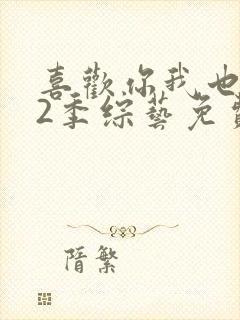 喜歡你我也
2季綜藝免費
隋繁